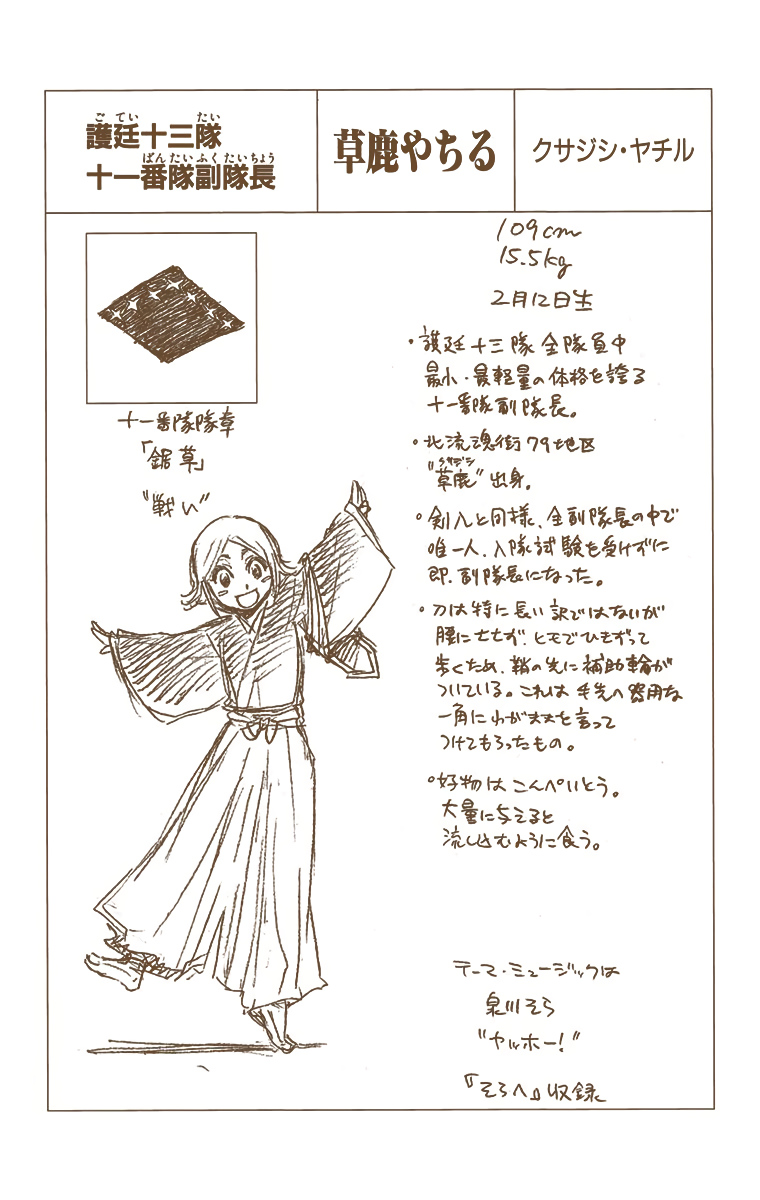 護廷十三隊
十一番隊副隊長
草鹿やちる
クサジシ・ヤチル
109cm
15.5kg
2月12日生
十一番隊隊章
「鋸草」
"戦い"
・護廷十三隊全隊員中
最小・最軽量の体格を誇る
十一番隊副隊長。
・北流魂街79地区
"草鹿"出身。
・剣八と同様、全副隊長の中で
唯一人、入隊試験を受けずに
即、副隊長になった。
・刀は特に長い訳ではないが
腰にもたず、ヒモでひきずって
歩くため、鞘の先に補助輪が
ついている。これは手先の器用な
一角にわがままを言って
つけてもらったもの。
・好物はこんぺいとう。
大量に与えると
流し込むように食う。
テーマ・ミュージックは
泉川そら
"ヤッホー!"
『そらへ』収録